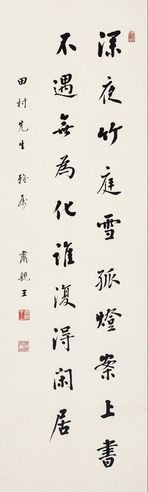 深夜竹庭雪孤燈案上書
不遇無為化誰復得閑居
田村先生雅屬
肅親王